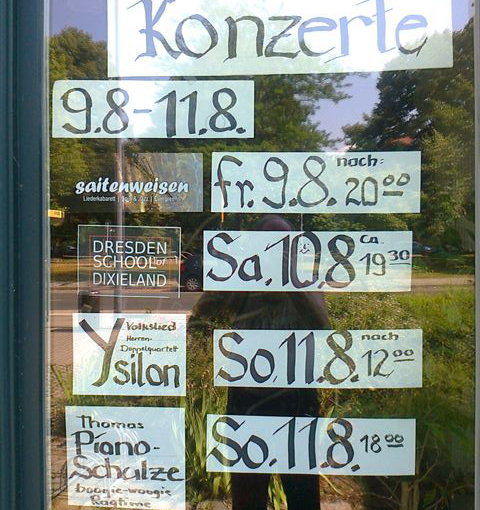 Konzerte
9.8-11.8.
saitenweisen
Liederkabarett
fr. 9.8. nach: 20⁰⁰
DRESDEN
SCHOOL of
DIXIELAND
Sa. 10.8 ca. 19³⁰
Ysilon
Volkslied
Herren-
Doppelquartett
So. 11.8. nach 12⁰⁰
Thomas
Piano-
Schulze
boogie-woogie
Ragtime
So. 11.8. 18⁰⁰